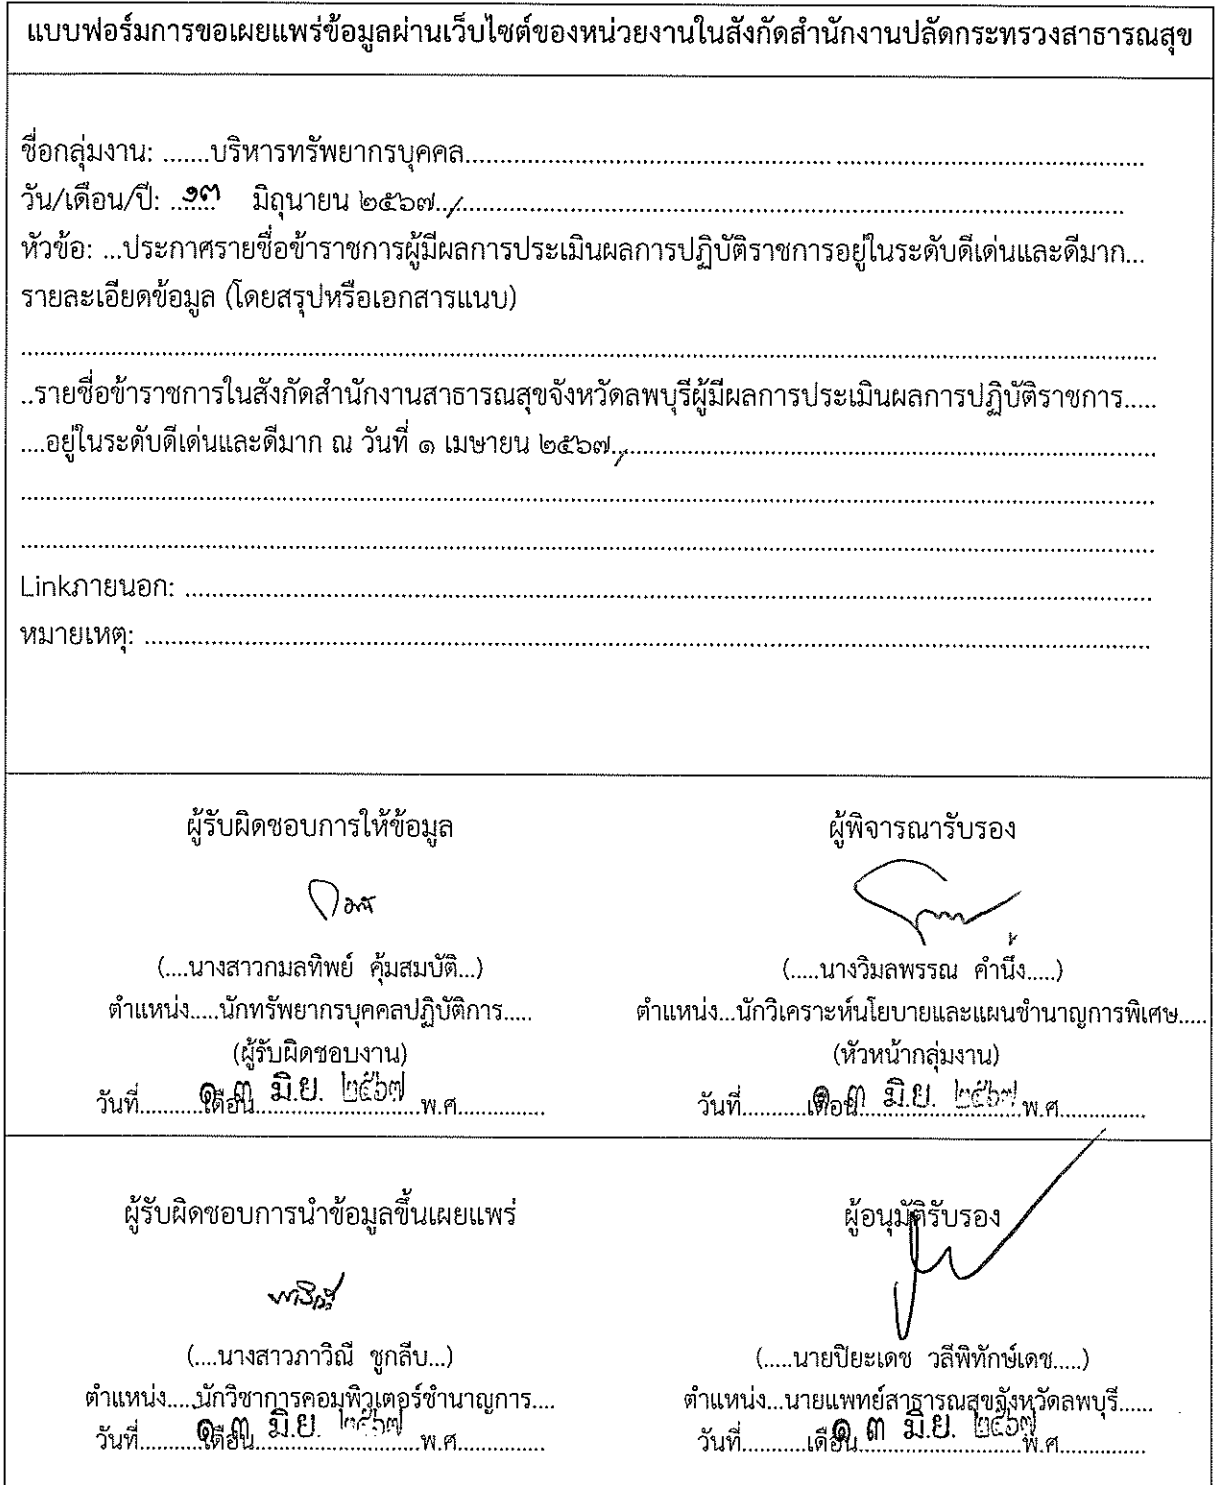 แบบฟอร์มการขอเผยแพร่ข้อมูลผ่านเว็บไซต์ของหน่วยงานในสังกัดสำนักงานปลัดกระทรวงสาธารณสุข
ชื่อกลุ่มงาน: .......บริหารทรัพยากรบุคคล..........................................................................................................
วัน/เดือน/ปี: ..๑๓ มิถุนายน ๒๕๖๗../.......................................................................................................
หัวข้อ: ...ประกาศรายชื่อข้าราชการผู้มีผลการประเมินผลการปฏิบัติราชการอยู่ในระดับดีเด่นและดีมาก...
รายละเอียดข้อมูล (โดยสรุปหรือเอกสารแนบ)
..รายชื่อข้าราชการในสังกัดสำนักงานสาธารณสุขจังหวัดลพบุรีผู้มีผลการประเมินผลการปฏิบัติราชการ.....
....อยู่ในระดับดีเด่นและดีมาก ณ วันที่ ๑ เมษายน ๒๕๖๗../...................................................................................
Linkภายนอก: ..................................................................................................................................................
หมายเหตุ: ........................................................................................................................................................
ผู้รับผิดชอบการให้ข้อมูล
(....นางสาวกมลทิพย์ คุ้มสมบัติ...)
ตำแหน่ง.....นักทรัพยากรบุคคลปฏิบัติการ.....
(ผู้รับผิดชอบงาน)
วันที่..........เดือน..........................พ.ศ..............
๑ ๓ มิ.ย. ๒๕๖๗
ผู้พิจารณารับรอง
(.....นางวิมลพรรณ คำนึ้ง.....)
ตำแหน่ง...นักวิเคราะห์นโยบายและแผนชำนาญการพิเศษ.....
(หัวหน้ากลุ่มงาน)
วันที่..........เดือน..........................พ.ศ..............
๑ ๓ มิ.ย. ๒๕๖๗
ผู้รับผิดชอบการนำข้อมูลขึ้นเผยแพร่
(....นางสาวภาวิณี ชูกลีบ...)
ตำแหน่ง.....นักวิชาการคอมพิวเตอร์ชำนาญการ....
วันที่..........เดือน..........................พ.ศ..............
๑ ๓ มิ.ย. ๒๕๖๗
ผู้อนุมัติรับรอง
(.....นายปิยะเดช วลีพิทักษ์เดช.....)
ตำแหน่ง...นายแพทย์สาธารณสุขจังหวัดลพบุรี......
วันที่..........เดือน..........................พ.ศ..............
๑ ๓ มิ.ย. ๒๕๖๗